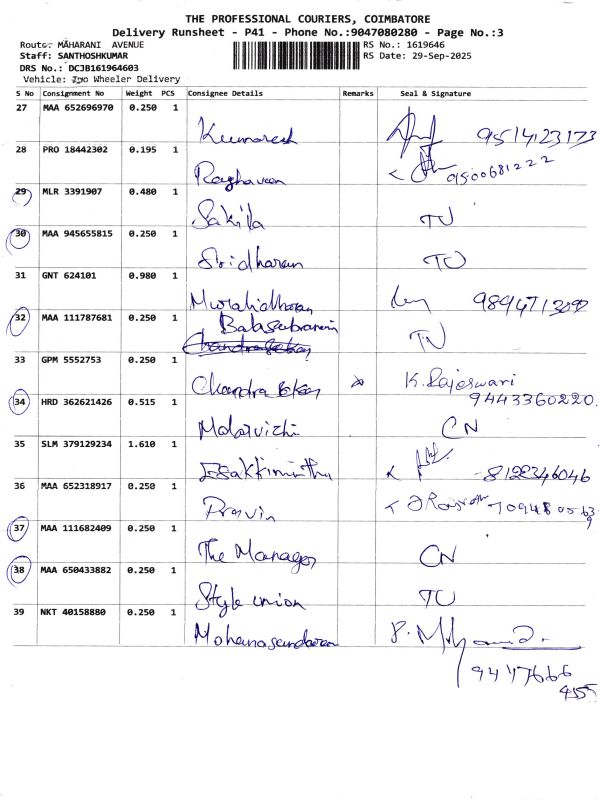 THE PROFESSIONAL COURIERS, COIMBATORE
Delivery Runsheet - P41 - Phone No.:9047080280 - Page No.:3
Route: MAHARANI AVENUE RS No.: 1619646
Staff: SANTHOSHKUMAR RS Date: 29-Sep-2025
DRS No.: DCJB161964603
Vehicle: Two Wheeler Delivery
S No Consignment No Weight PCS Consignee Details Remarks Seal & Signature
27 MAA 652696970 0.250 1
Kumaresh 9514123173
28 PRO 18442302 0.195 1
Raghavan 9500681222
29 MLR 3391907 0.480 1
Sakila TU
30 MAA 945655815 0.250 1
Sridharan TU
31 GNT 624101 0.980 1
Muralidharan
32 MAA 111787681 0.250 1
Balasubramani TU
33 GPM 5552753 0.250 1
Chandra Sekar K. Rajeswari
9443360220.
34 HRD 362621426 0.515 1
Malarvizhi CN
35 SLM 379129234 1.610 1
Esakkimuthu 8122346046
36 MAA 652318917 0.250 1
Pravin
37 MAA 111682409 0.250 1
The Manager CN
38 MAA 650433882 0.250 1
Style union TU
39 NKT 40158880 0.250 1
Mohanasundaram